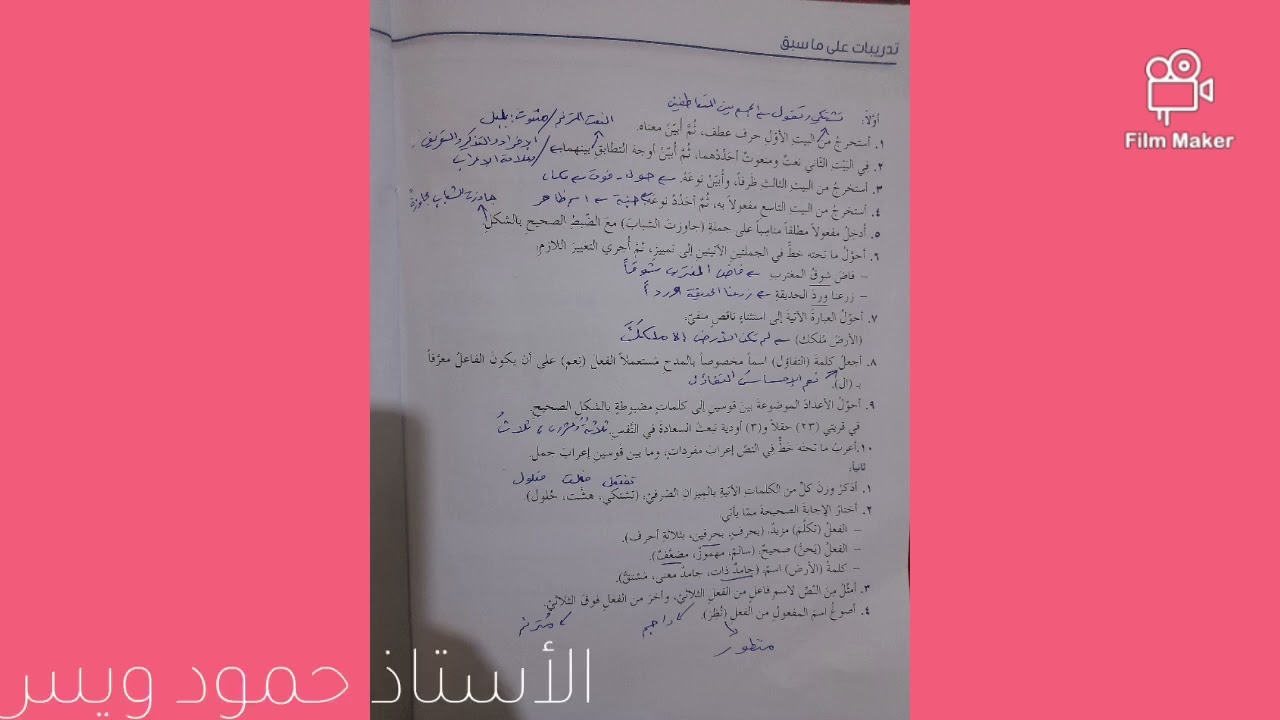 تدريبات على ما سبق
تشتكي وتقول ← الجمع بين المتعاطفين
أوّلاً:
١. أستخرجُ من البيتِ الأوّل حرف عطف، ثُمَّ أُبيّنُ معناه.
النعت المترنم / منعوت: بلبل
٢. في البَيْت الثّاني نعتٌ ومنعوتٌ أحدّدُهما، ثُمَّ أُبيّنُ أوجهَ التطابق بينهما.
الإفراد والتذكير والتعريف / وعلامة الإعراب
٣. أستخرجُ من البيت الثالث ظرفاً، وأُبيّنُ نوعَهُ. ← حول - فوق ← مكان
٤. أستخرجُ من البيت التاسع مفعولاً به، ثُمَّ أحدّدُ نوعَهُ. ← اسم ظاهر
جاوزتَ الشبابَ مجاوزةً
٥. أدخلُ مفعولاً مطلقاً مناسباً على جملةِ (جاوزتَ الشبابَ) معَ الضّبطِ الصحيحِ بالشكلِ.
٦. أحوّلُ ما تحته خطٌّ في الجملتينِ الآتيتينِ إلى تمييزٍ، ثمَّ أُجري التغييرَ اللازمَ:
– فاضَ شوقُ المغتربِ ← فاض المغترب شوقاً
– زرعنا وردَ الحديقةِ ← زرعنا الحديقة ورداً
٧. أحوّلُ العبارةَ الآتيةَ إلى استثناءٍ ناقصٍ منفيّ:
(الأرضُ مُلككَ) ← الأرض إلا ملككَ
٨. أجعلُ كلمةَ (التفاؤل) اسماً مخصوصاً بالمدح مُستعملاً الفعلَ (نِعم) على أن يكونَ الفاعلُ معرّفاً
بـ (ال). نعم الإحساسُ التفاؤل
٩. أحوّلُ الأعدادَ الموضوعةَ بينَ قوسينِ إلى كلماتٍ مضبوطةٍ بالشكلِ الصحيحِ.
في قريتي (٢٣) حقلاً و(٣) أودية تبعثُ السعادةَ في النَّفسِ. ثلاثةٌ وعشرون، ثلاثُ
١٠. أعربُ ما تحته خطٌّ في النصّ إعراب مفرداتٍ، وما بين قوسينِ إعرابَ جملٍ.
ثانياً:
تفتعل فعلت فعلول
١. أذكرُ وزنَ كلٍّ من الكلماتِ الآتيةِ بالميزانِ الصّرفيّ: (تشتكي، هشّت، حُلول).
٢. أختارُ الإجابةَ الصحيحةَ ممّا يأتي
– الفعلُ (تكلّمَ) مزيدٌ: (بحرفٍ، بحرفينِ، بثلاثةِ أحرف).
– الفعلُ (يَحنُّ) صحيحٌ: (سالمٌ، مهموزٌ، مضعّفٌ).
– كلمةُ (الأرض) اسمٌ: (جامدُ ذات، جامدُ معنى، مُشتقٌّ).
٣. أمثّلُ مِنَ النّصّ لاسمِ فاعلٍ من الفعلِ الثلاثيّ، وآخرَ من الفعلِ فوقَ الثلاثيّ.
٤. أصوغُ اسمَ المفعولِ من الفعلِ (نُظِرَ).
مُترنم
منظور
الأستاذ حمود ويس
Film Maker